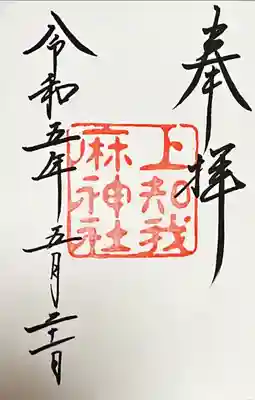 奉拝
上知我
麻神社
令和五年五月二十一日